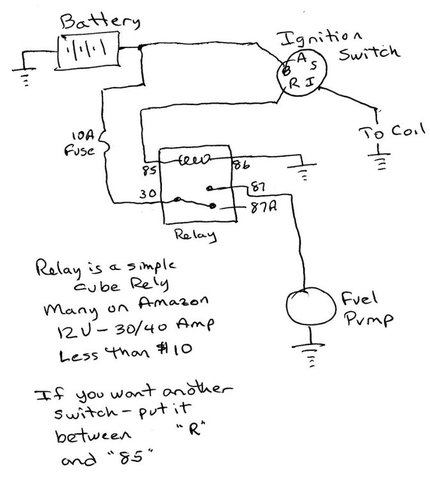 Battery
Ignition
Switch
B A S
R I
10A
Fuse
To Coil
85
86
30
87
87A
Relay
Fuel
Pump
Relay is a simple
cube Rely
Many on Amazon
12V - 30/40 Amp
Less than $10
If you want another
switch - put it
between "R"
and "85"